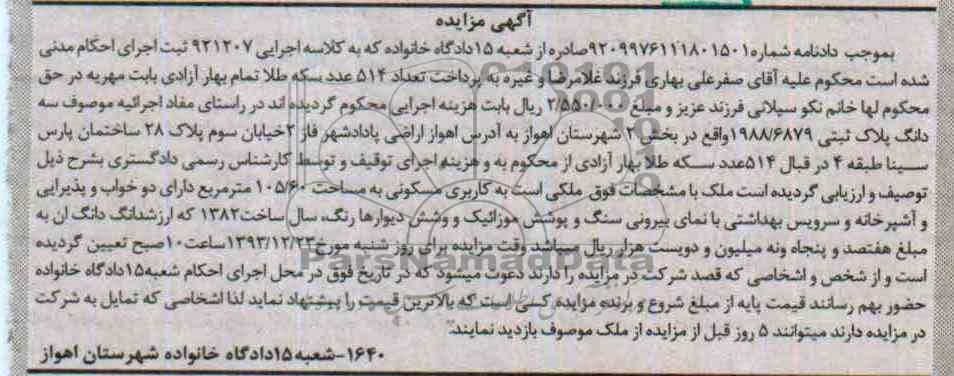 آگهی مزایده
بموجب دادنامه شماره۹۲۰۹۹۷۶۱۱۱۸۰۱۵۰۱صادره از شعبه ۱۵دادگاه خانواده که به کلاسه اجرایی ۹۲۱۲۰۷ ثبت اجرای احکام مدنی
شده است محکوم علیه آقای صفرعلی بهاری فرزند غلامرضا و غیره به پرداخت تعداد ۵۱۴ عدد سکه طلا تمام بهار آزادی بابت مهریه در حق
محکوم لها خانم نکو سیلانی فرزند عزیز و مبلغ ۲/۵۵۰/۰۰۰ ریال بابت هزینه اجرایی محکوم گردیده اند در راستای مفاد اجرائیه موصوف سه
دانگ پلاک ثبتی ۱۹۸۸/۶۸۷۹واقع در بخش ۲ شهرستان اهواز به آدرس اهواز اراضی پادادشهر فاز ۲خیابان سوم پلاک ۲۸ ساختمان پارس
سینا طبقه ۴ در قبال ۵۱۴عدد سکه طلا بهار آزادی از محکوم به و هزینه اجرای توقیف و توسط کارشناس رسمی دادگستری بشرح ذیل
توصیف و ارزیابی گردیده است ملک با مشخصات فوق ملکی است به کاربری مسکونی به مساحت ۱۰۵/۶۰ مترمربع دارای دو خواب و پذیرایی
و آشپرخانه و سرویس بهداشتی با نمای بیرونی سنگ و پوشش موزائیک و وشش دیوارها رنگ، سال ساخت۱۳۸۲ که ارزشدانگ دانگ ان به
مبلغ هفتصد و پنجاه ونه میلیون و دویست هزار ریال میباشد وقت مزایده برای روز شنبه مورخ۱۳۹۳/۱۲/۲۳ساعت۱۰صبح تعیین گردیده
است و از شخص و اشخاصی که قصد شرکت در مزایده را دارند دعوت میشود که در تاریخ فوق در محل اجرای احکام شعبه۱۵دادگاه خانواده
حضور بهم رسانند قیمت پایه از مبلغ شروع و برنده مزایده کسی است که بالاترین قیمت را پیشنهاد نماید لذا اشخاصی که تمایل به شرکت
در مزایده دارند میتوانند ۵ روز قبل از مزایده از ملک موصوف بازدید نمایند.
۱۶۴۰-شعبه۱۵دادگاه خانواده شهرستان اهواز
ParsNamadData